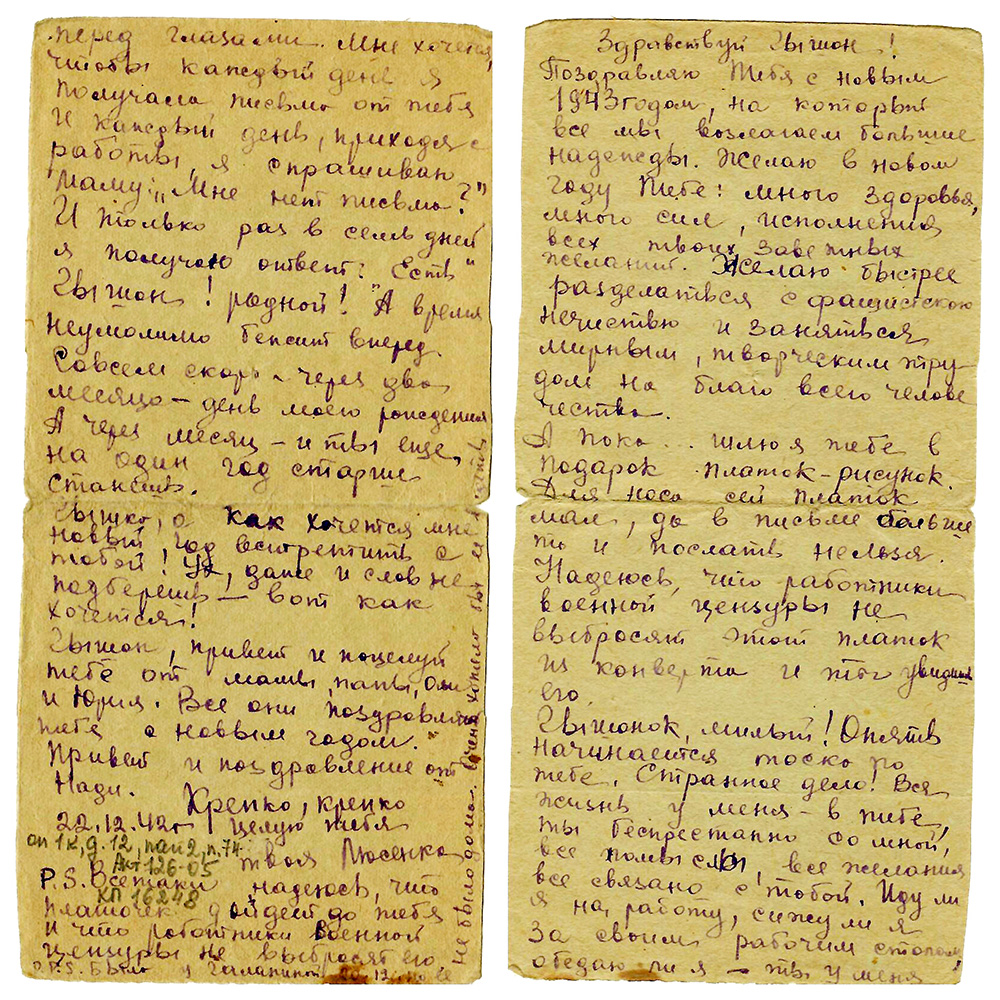 Здравствуй Гвишон!
Поздравляю Тебя с новым
1943 годом, на который
все мы возлагаем большие
надежды. Желаю в новом
году Тебе: много здоровья,
много сил, исполнения
всех твоих заветных
желаний. Желаю быстрее
разделаться с фашистскою
нечистью и заняться
мирным, творческим тру-
дом на благо всего челове
чества.
А пока... шлю я тебе в
подарок платок-рисунок.
Для носа сей платок
мал, да в письме больше
то и послать нельзя.
Надеюсь, что работники
военной цензуры не
выбросят этот платок
из конверта и ты увидишь
его.
Гвишонок, милый! Опять
начинается тоска по
тебе. Странное дело! Вся
жизнь у меня - в тебе,
ты беспрестанно со мной,
все помыслы, все желания
все связано с тобой. Иду ли
я на работу, сижу ли я
за своим рабочим столом,
обедаю ли я - ты у меня
перед глазами. Мне хочется,
чтобы каждый день я
получала письма от тебя
И каждый день, приходя с
работы, я спрашиваю
маму: "Мне нет письма?"
И только раз в семь дней
я получаю ответ: "Есть"
Гвишон! родной! А время
неумолимо бежит вперед.
Совсем скоро - через два
месяца - день моего рождения
А через месяц - и ты еще,
на один год старше
станешь.
Гвишко, а как хочется мне
новый год встретить с
тобой! Ух, даже и слов не
подберешь - вот как
хочется!
Гвишон, привет и поцелуй
тебе от мамы, папы, Оли
и Юрия. Все они поздравляют
тебя с новым годом.
Привет и поздравление от
Нади.
Крепко, крепко
22.12.42г целую тебя
твоя Люсенка
оп 1к, д.12, пап2, п.74
Акт 126-05
КП 16248
P.S. Всетаки надеюсь, что
платочек дойдет до тебя
и что работники военной
цензуры не выбросят его
P.P.S. Была у Галапиной
не было дома.